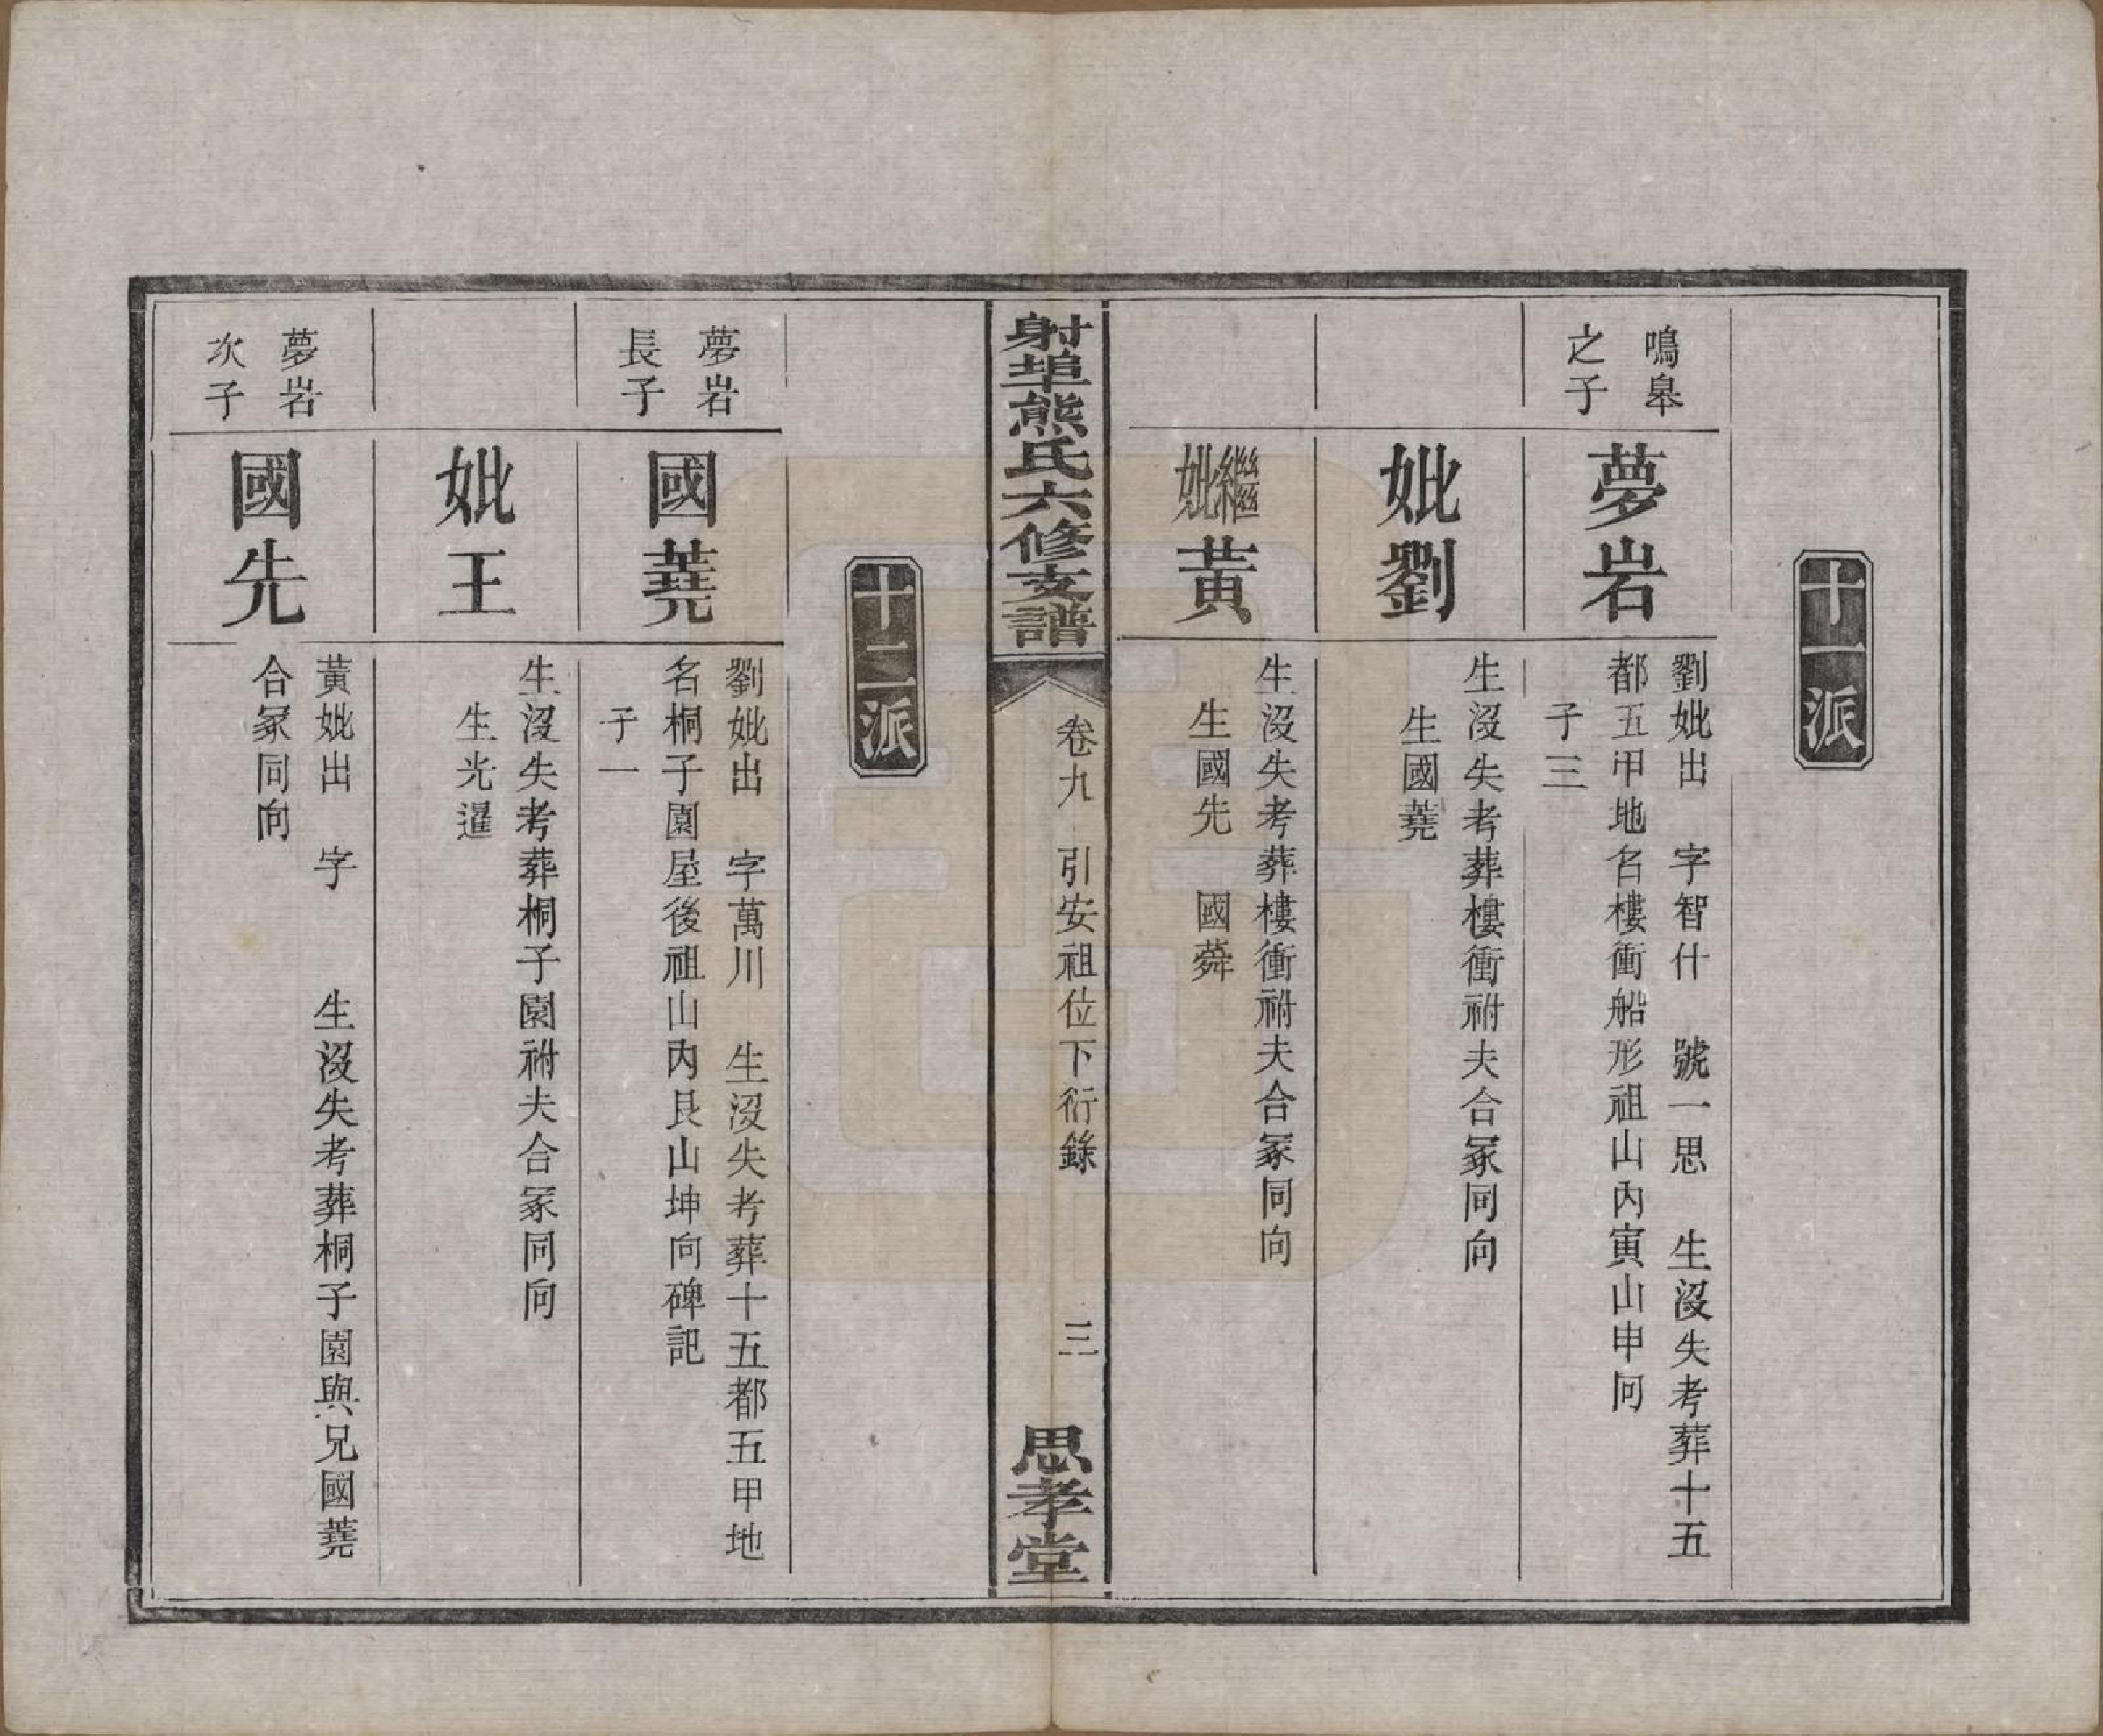 十一派
鳴皋
之子
夢岩
劉妣出　字智什　號一思　生沒失考葬十五
都五甲地名樓衝船形祖山內寅山申向
子三
妣劉
生沒失考葬樓衝祔夫合冢同向
生國蕘
繼妣黃
生沒失考葬樓衝祔夫合冢同向
生國先　國蕣
射埠熊氏六修支譜
卷九　引安祖位下衍錄
三
思孝堂
十二派
夢岩
長子
國蕘
劉妣出　字萬川　生沒失考葬十五都五甲地
名桐子園屋後祖山內艮山坤向碑記
子一
妣王
生沒失考葬桐子園祔夫合冢同向
生光暹
夢岩
次子
國先
黃妣出　字　　生沒失考葬桐子園與兄國蕘
合冢同向